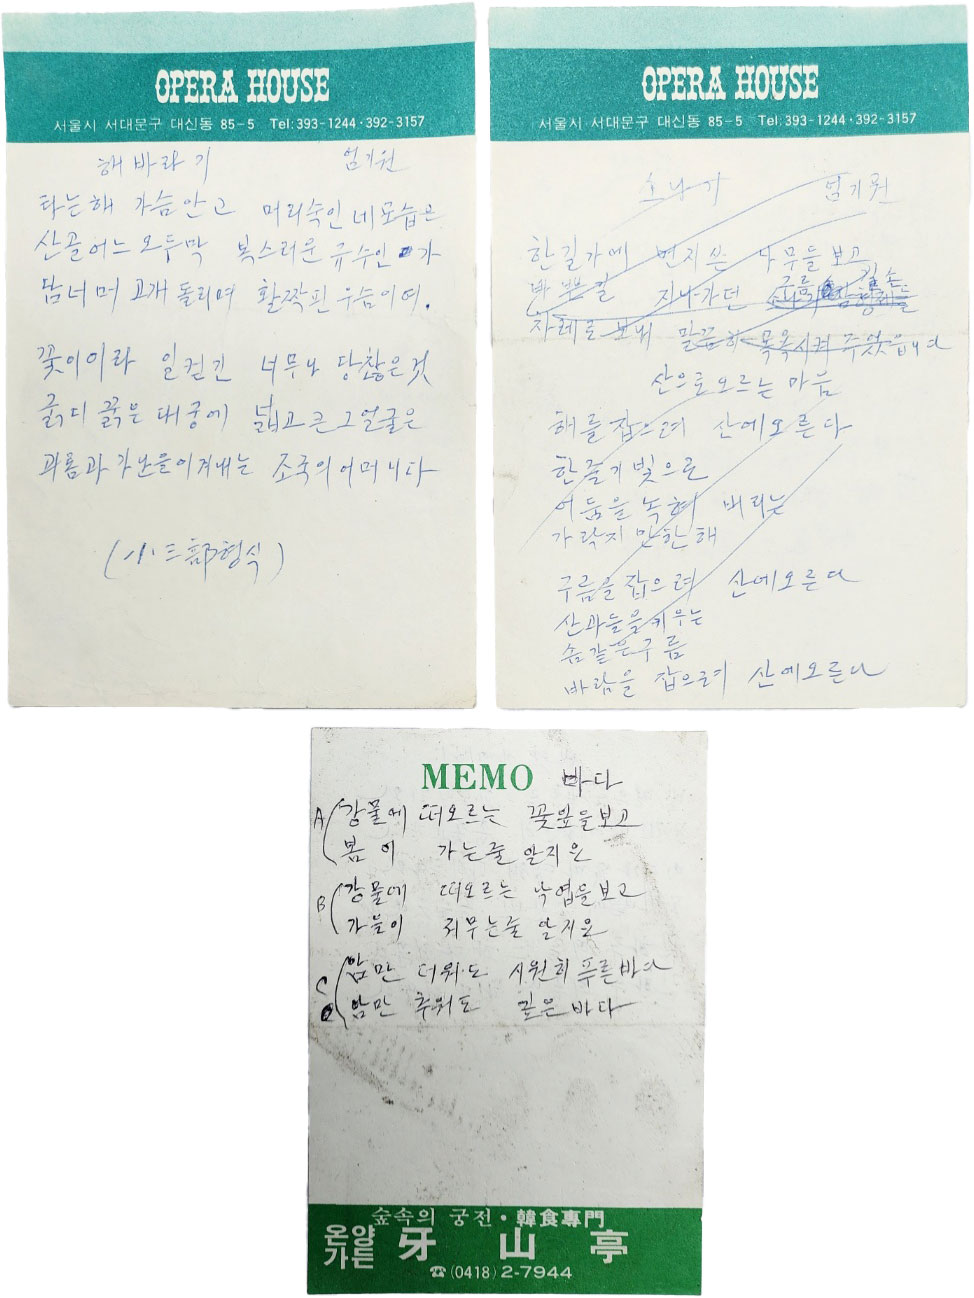 OPERA HOUSE
서울시 서대문구 대신동 85-5 Tel: 393-1244·392-3157
해바라기 엄기원
타는해 가슴안고 머리숙인 네모습은
산골어느 오두막 복스러운 규수인가
담너머 고개 돌리며 활짝핀 웃음이여.
꽃이이라 일컫긴 너무나 당찮은것
굵디 굵은 대궁에 넓고큰 그얼굴은
과롬과 가난을이겨내는 조국의어머니다
(小三部형식)
OPERA HOUSE
서울시 서대문구 대신동 85-5 Tel: 393-1244·392-3157
소나기 엄기원
한길가에 먼지쓴 나무들보고
바쁜길 지나가던 구름
차례로 보내 말끔히 목욕시켜 주었읍니다
산으로오르는 마음
해를잡으려 산에오른다
한줄기빛으로
어둠을 녹혀 버리는
가락지 만한해
구름을잡으려 산에오른다
산과들을키우는
솜같은구름
바람을 잡으려 산에오른다
MEMO 바다
A 강물에 떠오르는 꽃잎을보고
봄이 가는줄 알지요
B 강물에 떠오르는 낙엽을보고
가을이 저무는줄 알지요
C 암만 더워도 시원히 푸른바다
암만 추워도 깊은바다
숲속의 궁전·韓食專門
온양가든 牙山亭
☎(0418)2-7944